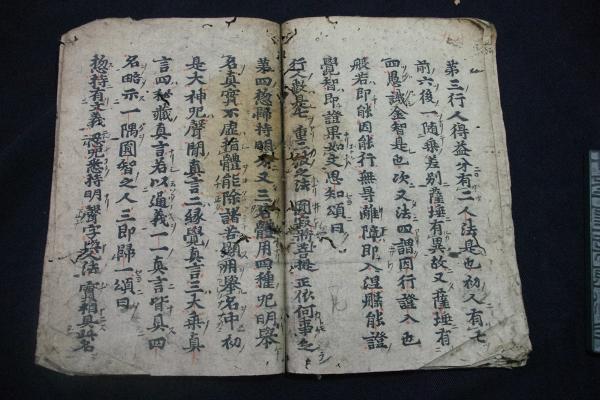 第三行人得益分有二人法是也初人有七
前六後一随乗差別薩埵有異故又薩埵有
四愚識金智是也次又法四謂因行證入也
般若即能因能行無㝵離障即入涅槃能證
覺智即證果如文思知頌曰
行人數是七 重二彼之法 圓寂菩提 正依何事之
第四惣歸持明分又三名體用四種咒明擧
名真實不虚指體能除諸苦顯用擧名中初
是大神咒聲聞真言二縁覺真言三大乗真
言四秘藏真言若以通義一一真言皆真四
名略示一隅圓智之人三即歸一頌曰
惣持有文義 忍咒悉持明 聲字人法 實相具此名